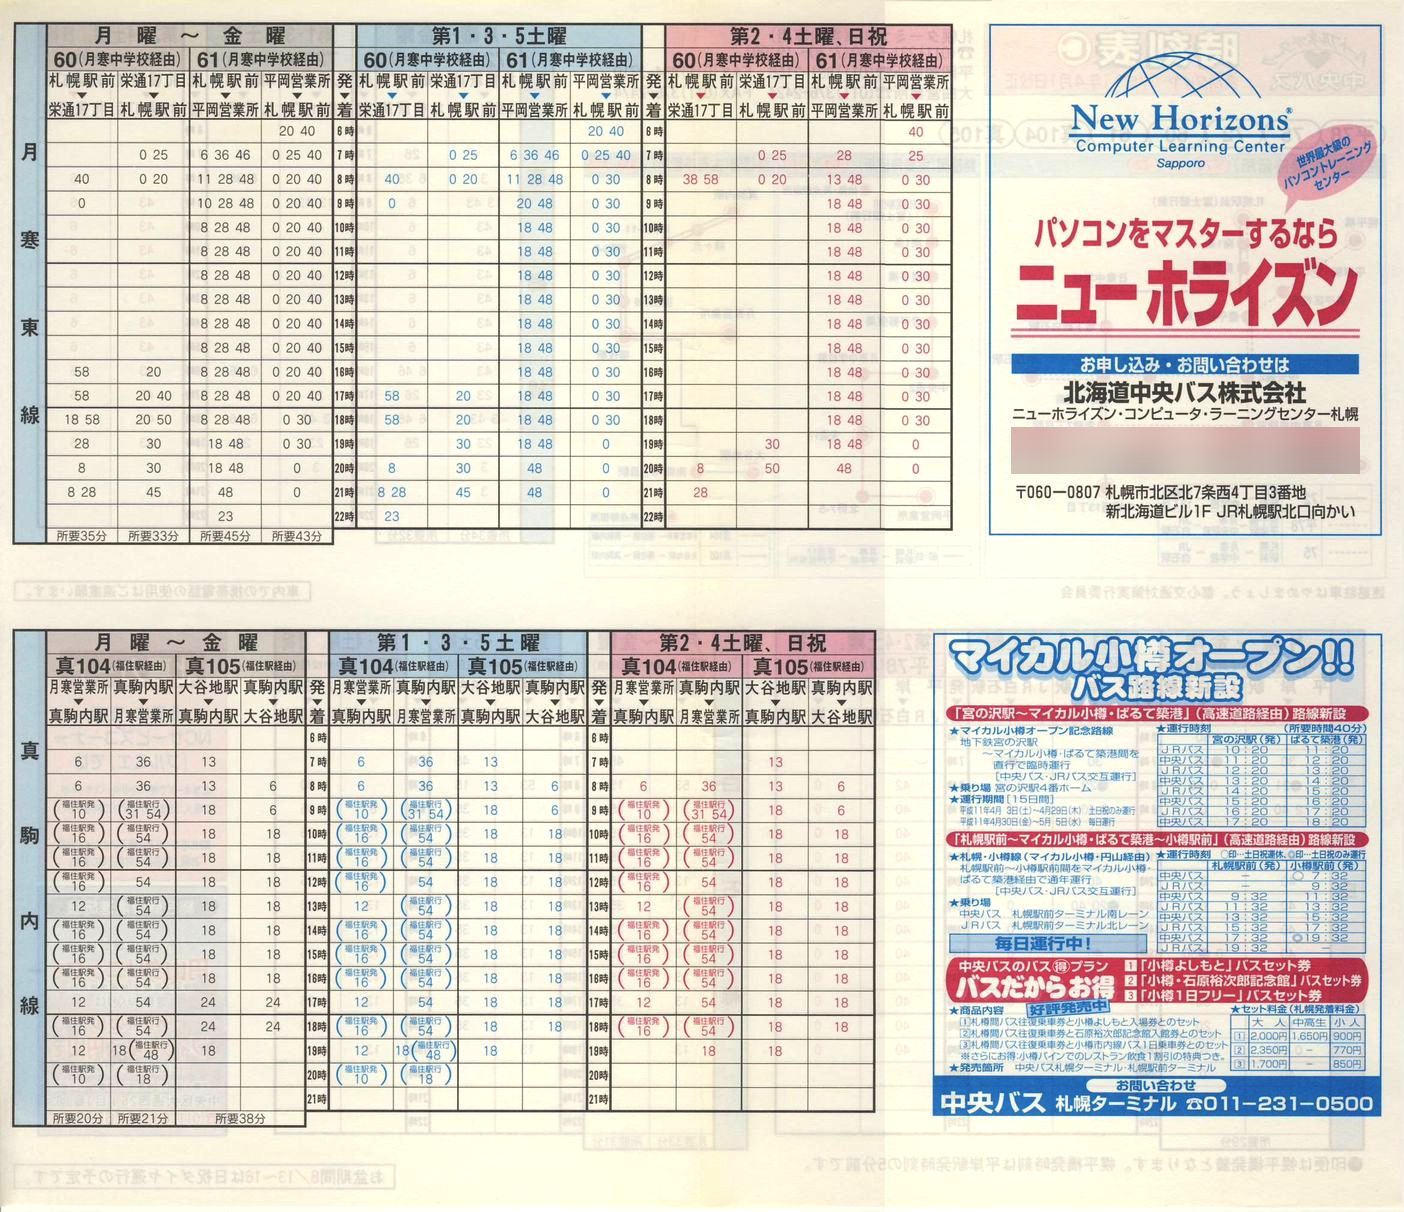 月寒東線
月曜～金曜 第1・3・5土曜 第2・4土曜、日祝
60(月寒中学校経由) 61(月寒中学校経由) 発▼着 60(月寒中学校経由) 61(月寒中学校経由) 発▼着 60(月寒中学校経由) 61(月寒中学校経由)
札幌駅前 栄通17丁目 札幌駅前 平岡営業所 札幌駅前 栄通17丁目 札幌駅前 平岡営業所 札幌駅前 栄通17丁目 札幌駅前 平岡営業所
▼ ▼ ▼ ▼ ▼ ▼ ▼ ▼ ▼ ▼ ▼ ▼
栄通17丁目 札幌駅前 平岡営業所 札幌駅前 栄通17丁目 札幌駅前 平岡営業所 札幌駅前 栄通17丁目 札幌駅前 平岡営業所 札幌駅前
20 40 6時 20 40 6時 40
0 25 6 36 46 0 25 40 7時 0 25 6 36 46 0 25 40 7時 0 25 28 25
40 0 20 11 28 48 0 20 40 8時 40 0 20 11 28 48 0 30 8時 38 58 0 20 13 48 0 30
0 10 28 48 0 20 40 9時 0 20 48 0 30 9時 18 48 0 30
8 28 48 0 20 40 10時 18 48 0 30 10時 18 48 0 30
8 28 48 0 20 40 11時 18 48 0 30 11時 18 48 0 30
8 28 48 0 20 40 12時 18 48 0 30 12時 18 48 0 30
8 28 48 0 20 40 13時 18 48 0 30 13時 18 48 0 30
8 28 48 0 20 40 14時 18 48 0 30 14時 18 48 0 30
8 28 48 0 20 40 15時 18 48 0 30 15時 18 48 0 30
58 20 8 28 48 0 20 40 16時 18 48 0 30 16時 18 48 0 30
58 20 40 8 28 48 0 20 40 17時 58 20 18 48 0 30 17時 18 48 0 30
18 58 20 50 8 28 48 0 30 18時 58 20 18 48 0 30 18時 18 48 0 30
28 30 18 48 0 30 19時 30 18 48 0 19時 30 18 48 0
8 30 18 48 0 20時 8 30 48 0 20時 8 50 48 0
8 28 45 48 0 21時 8 28 45 48 0 21時 28
23 22時 23 22時
所要35分 所要33分 所要45分 所要43分
New Horizons®
Computer Learning Center
Sapporo
世界最大級の
パソコントレーニング
センター
パソコンをマスターするなら
ニューホライズン
お申し込み・お問い合わせは
北海道中央バス株式会社
ニューホライズン・コンピュータ・ラーニングセンター札幌
〒060－0807 札幌市北区北7条西4丁目3番地
新北海道ビル1F JR札幌駅北口向かい
真駒内線
月曜～金曜 第1・3・5土曜 第2・4土曜、日祝
真104(福住駅経由) 真105(福住駅経由) 発▼着 真104(福住駅経由) 真105(福住駅経由) 発▼着 真104(福住駅経由) 真105(福住駅経由)
月寒営業所 真駒内駅 大谷地駅 真駒内駅 月寒営業所 真駒内駅 大谷地駅 真駒内駅 月寒営業所 真駒内駅 大谷地駅 真駒内駅
▼ ▼ ▼ ▼ ▼ ▼ ▼ ▼ ▼ ▼ ▼ ▼
真駒内駅 月寒営業所 真駒内駅 大谷地駅 真駒内駅 月寒営業所 真駒内駅 大谷地駅 真駒内駅 月寒営業所 真駒内駅 大谷地駅
6時 6時
6 36 13 7時 6 36 13 7時 13
6 36 13 6 8時 6 36 13 6 8時 6 36 13 6
(福住駅発10) (福住駅行31 54) 18 6 9時 (福住駅発10) (福住駅行31 54) 18 6 9時 (福住駅発10) (福住駅行31 54) 18 6
(福住駅発16) (福住駅行54) 18 18 10時 (福住駅発16) (福住駅行54) 18 18 10時 (福住駅発16) (福住駅行54) 18 18
(福住駅発16) (福住駅行54) 18 18 11時 (福住駅発16) (福住駅行54) 18 18 11時 (福住駅発16) (福住駅行54) 18 18
(福住駅発16) 54 18 18 12時 (福住駅発16) 54 18 18 12時 (福住駅発16) 54 18 18
12 (福住駅行54) 18 18 13時 12 (福住駅行54) 18 18 13時 12 (福住駅行54) 18 18
(福住駅発16) (福住駅行54) 18 18 14時 (福住駅発16) (福住駅行54) 18 18 14時 (福住駅発16) (福住駅行54) 18 18
(福住駅発16) (福住駅行54) 18 18 15時 (福住駅発16) (福住駅行54) 18 18 15時 (福住駅発16) (福住駅行54) 18 18
(福住駅発16) (福住駅行54) 18 18 16時 (福住駅発16) (福住駅行54) 18 18 16時 (福住駅発16) (福住駅行54) 18 18
12 54 24 24 17時 12 54 18 18 17時 12 54 18 18
(福住駅発16) (福住駅行54) 24 24 18時 (福住駅発16) (福住駅行54) 18 18 18時 (福住駅発16) (福住駅行54) 18 18
12 18(福住駅行48) 18 19時 12 18(福住駅行48) 18 19時 18 18
(福住駅発10) (福住駅行18) 20時 (福住駅発10) (福住駅行18) 20時
21時 21時
所要20分 所要21分 所要38分
マイカル小樽オープン!!
バス路線新設
「宮の沢駅～マイカル小樽・ぱるて築港」(高速道路経由)路線新設
★マイカル小樽オープン記念路線
地下鉄宮の沢駅
～マイカル小樽・ぱるて築港間を
直行で臨時運行
[中央バス・JRバス交互運行]
★乗り場 宮の沢駅4番ホーム
★運行期間[15日間]
平成11年4月 3日(土)～4月29日(木) 土日祝のみ運行
平成11年4月30日(金)～5月 5日(水) 毎日運行
★運行時刻 (所要時間40分)
宮の沢駅(発) ぱるて築港(発)
JRバス 10:20 11:20
中央バス 11:20 12:20
JRバス 12:20 13:20
中央バス 13:20 14:20
JRバス 14:20 15:20
中央バス 15:20 16:20
JRバス 16:20 17:20
中央バス 17:20 18:20
「札幌駅前～マイカル小樽・ぱるて築港～小樽駅前」(高速道路経由)路線新設
★札幌・小樽線(マイカル小樽・円山経由)
札幌駅前～小樽駅前間をマイカル小樽・
ぱるて築港経由で通年運行
[中央バス・JRバス交互運行]
★乗り場
中央バス 札幌駅前ターミナル南レーン
JRバス 札幌駅前ターミナル北レーン
毎日運行中!
★運行時刻 ○印…土日祝運休、◎印…土日祝のみ運行
札幌駅前(発) 小樽駅前(発)
中央バス － ○ 7:32
JRバス － 9:32
中央バス 9:32 11:32
JRバス 11:32 13:32
中央バス 13:32 15:32
JRバス 15:32 17:32
中央バス 17:32 ◎19:32
JRバス 19:32 －
中央バスのバス得プラン
バスだからお得
好評発売中
1「小樽よしもと」バスセット券
2「小樽・石原裕次郎記念館」バスセット券
3「小樽1日フリー」バスセット券
★商品内容
1札樽間バス往復乗車券と小樽よしもと入場券とのセット
2札樽間バス往復乗車券と石原裕次郎記念館入館券とのセット
3札樽間バス往復乗車券と小樽市内線バス1日乗車券とのセット
※さらにお得:小樽バインでのレストラン飲食1割引の特典つき。
★発売箇所 中央バス札幌ターミナル・札幌駅前ターミナル
★セット料金(札幌発着料金)
大人 中高生 小人
1 2,000円 1,650円 900円
2 2,350円 － 770円
3 1,700円 － 850円
お問い合わせ
中央バス 札幌ターミナル ☎011－231－0500